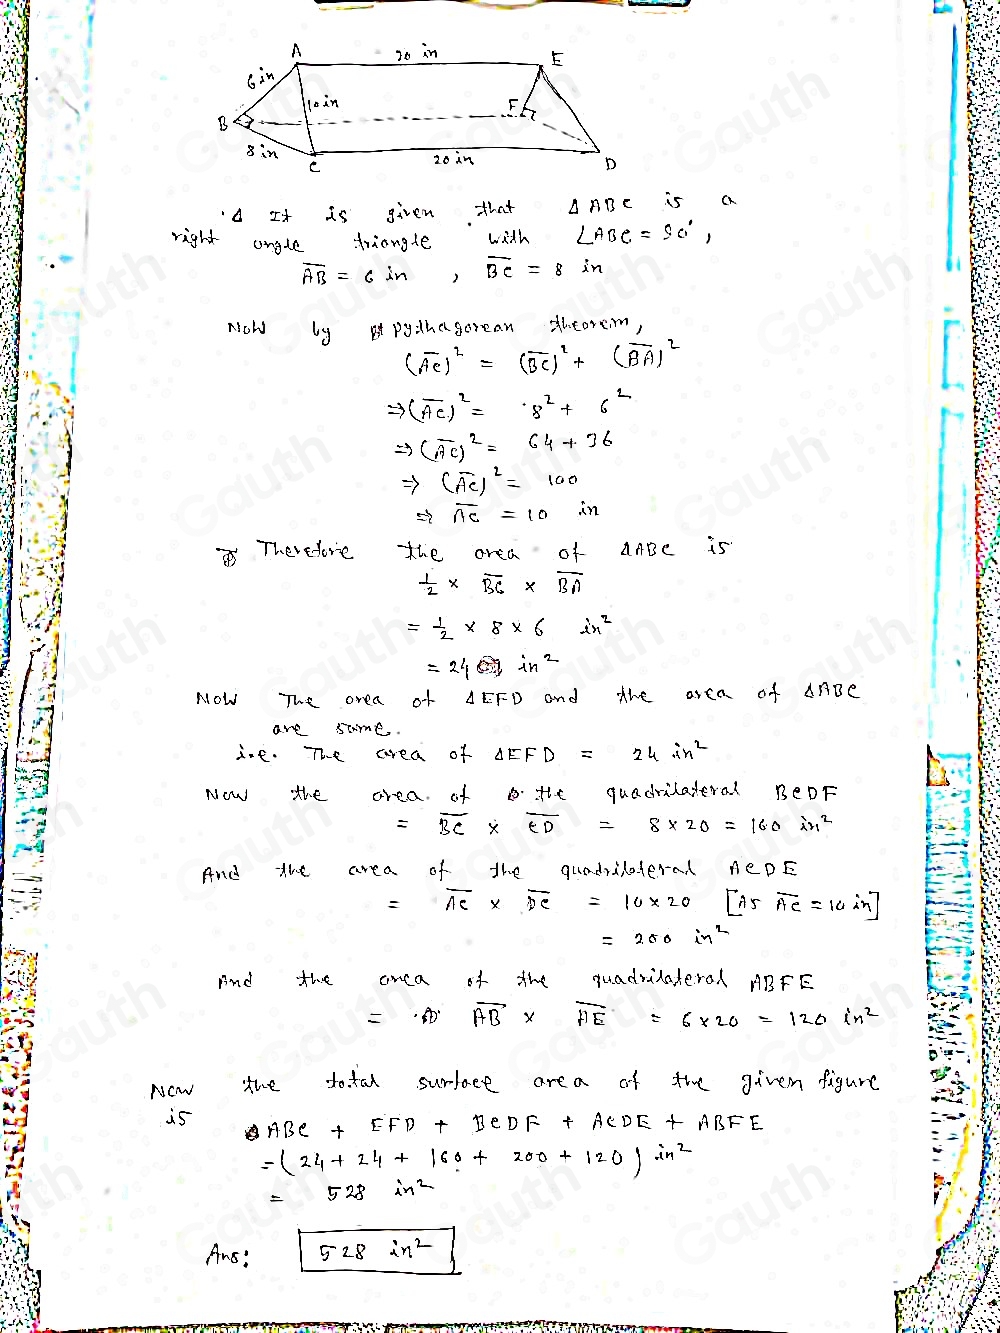 A 20 in E
6 in
10 in
B F
8 in
C 20 in D
It is given that Δ ABC is a
right angle triangle with ∠ABC = 90°,
AB = 6 in , BC = 8 in
Now by pythagorean theorem,
(AC)² = (BC)² + (BA)²
⇒ (AC)² = 8² + 6²
⇒ (AC)² = 64 + 36
⇒ (AC)² = 100
⇒ AC = 10 in
Therefore the area of ΔABC is
1/2 × BC × BA
= 1/2 × 8 × 6 in²
= 24 in²
Now The area of ΔEFD and the area of ΔABC
are same.
i.e. The area of ΔEFD = 24 in²
Now the area of the quadrilateral BCDF
= BC × CD = 8 × 20 = 160 in²
And the area of the quadrilateral ACDE
= AC × DC = 10 × 20 [As AC = 10 in]
= 200 in²
And the area of the quadrilateral ABFE
= AB × AE = 6 × 20 = 120 in²
Now the total surface area of the given figure
is
ABC + EFD + BCDF + ACDE + ABFE
= (24 + 24 + 160 + 200 + 120) in²
= 528 in²
Ans: 528 in²
Gauth